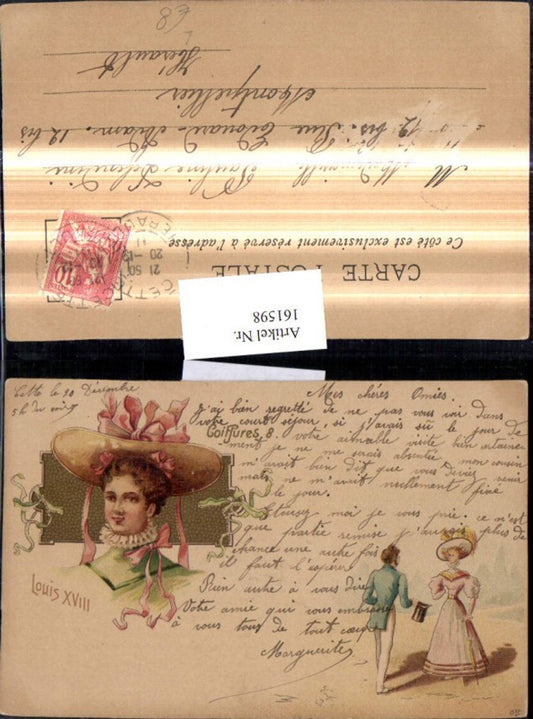 CARTE POSTALE
Ce côté est exclusivement réservé à l'adresse
Pauline
12 bis. Rue Edouard Adam. 12 bis
Montpellier
Hérault
68
CETTE
21 50
20 -12
HERAULT
Artikel Nr.
161598
Cette le 20 Décembre
5h du soir
Coiffures, 8.
Louis XVIII
Mes chères Amies.
J'ai bien regretté de ne pas vous voir dans
votre court séjour, si j'avais su le jour de
votre aimable visite bien certaine
ment je ne me serais absentée, mon cousin
m'avait bien dit que vous deviez venir
mais ne m'avait nullement fixé
le jour.
Excusez moi je vous prie. ce n'est
que partie remise j'aurais plus de
chance une autre fois
il faut l'espérer
Rien autre à vous dire
Votre amie qui vous embrasse
à vous tous de tout cœur
Marguerite